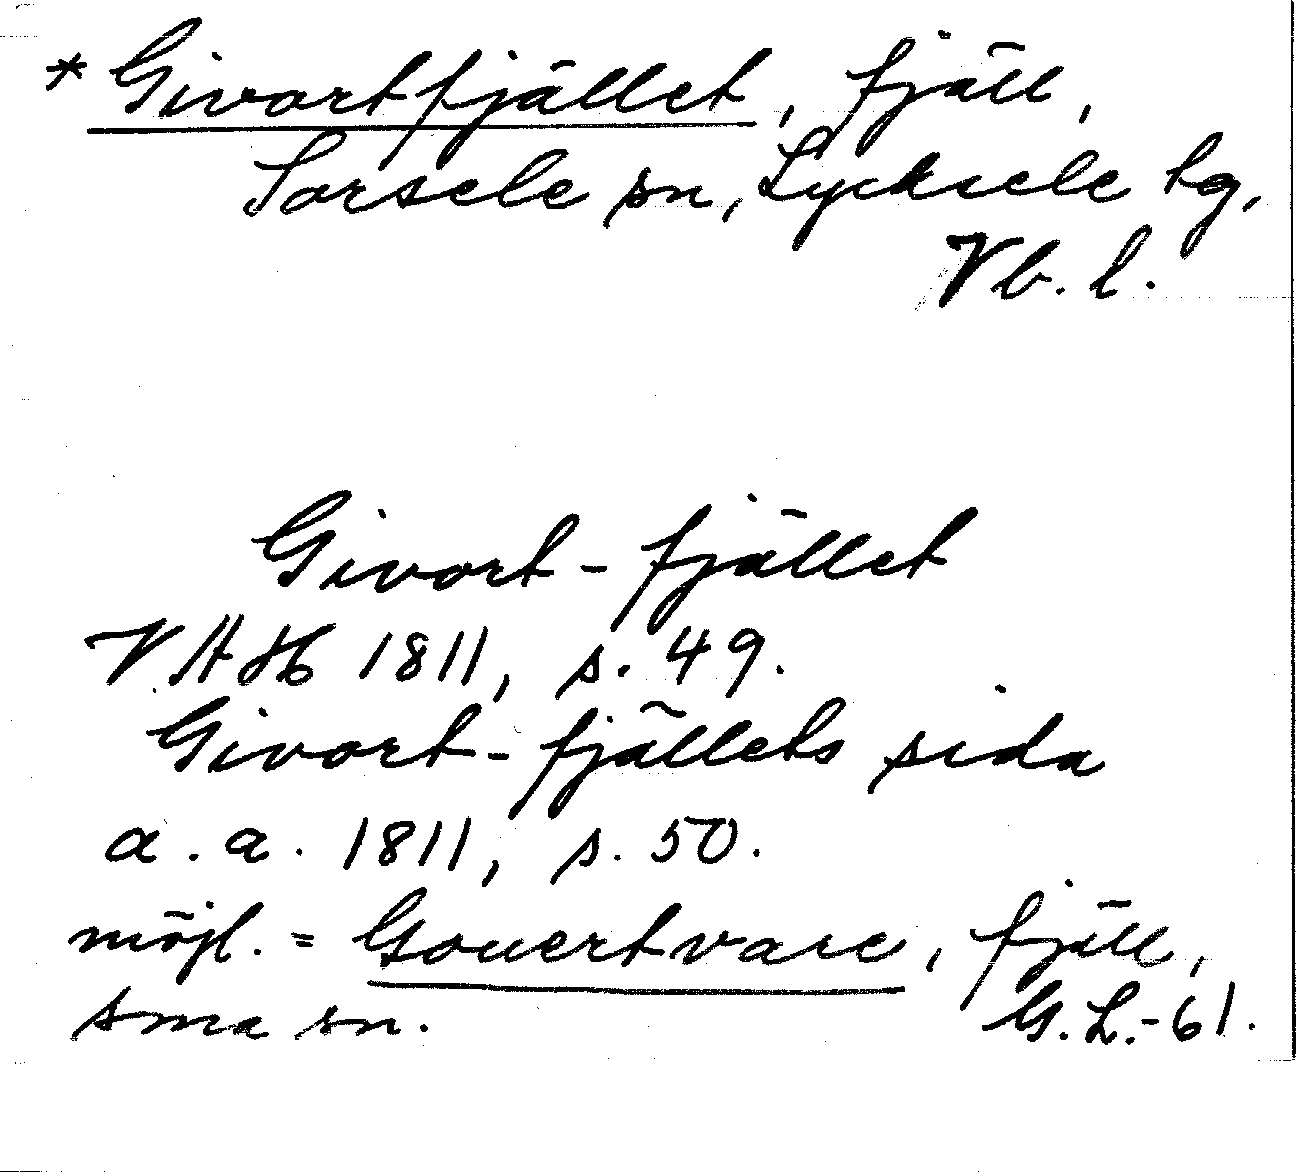 * Givortfjället, fjäll,
Sorsele sn, Lycksele lg,
Vb. l.
Givort-fjället
VAH 1811, s. 49.
Givort-fjällets sida
a. a. 1811, s. 50.
möjl. = Gouertvare, fjäll,
sma sn.
G. L. -61.